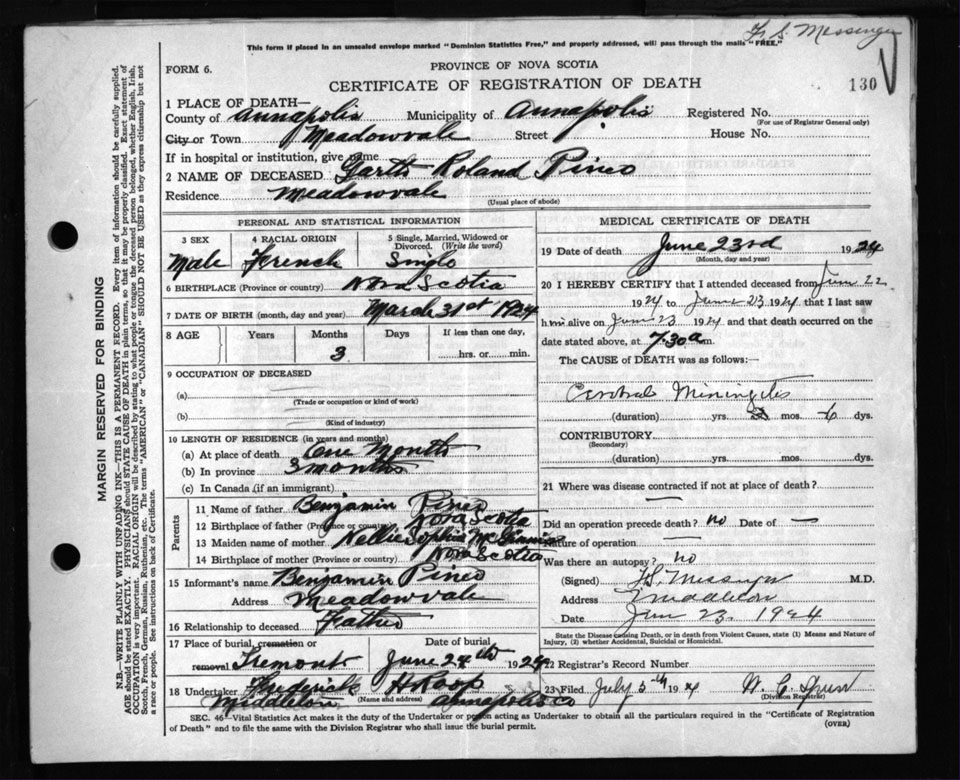 F. S. Messenger
This form if placed in an unsealed envelope marked "Dominion Statistics Free," and properly addressed, will pass through the mails "FREE."
FORM 6.
PROVINCE OF NOVA SCOTIA
CERTIFICATE OF REGISTRATION OF DEATH
130
1 PLACE OF DEATH—
County of Annapolis Municipality of Annapolis Registered No.
(For use of Registrar General only)
City or Town Meadowvale Street House No.
If in hospital or institution, give name
2 NAME OF DECEASED Garth Roland Pineo
Residence Meadowvale
(Usual place of abode)
PERSONAL AND STATISTICAL INFORMATION
3 SEX 4 RACIAL ORIGIN 5 Single, Married, Widowed or Divorced. (Write the word)
Male French Single
6 BIRTHPLACE (Province or country) Nova Scotia
7 DATE OF BIRTH (month, day and year) March 31st 1924
8 AGE Years Months Days If less than one day,
3 hrs. or min.
9 OCCUPATION OF DECEASED
(a)
(Trade or occupation or kind of work)
(b)
(Kind of industry)
10 LENGTH OF RESIDENCE (in years and months)
(a) At place of death One Month
(b) In province 3 months
(c) In Canada (if an immigrant)
Parents
11 Name of father Benjamin Pineo
12 Birthplace of father (Province or country) Nova Scotia
13 Maiden name of mother Nellie Sophia
14 Birthplace of mother (Province or country) Nova Scotia
15 Informant's name Benjamin Pineo
Address Meadowvale
16 Relationship to deceased Father
17 Place of burial, cremation or Date of burial
removal Tremont June 24th 1924
18 Undertaker Frederick H Roop
(Name and address)
Middleton Annapolis Co
MEDICAL CERTIFICATE OF DEATH
19 Date of death June 23rd 1924
(Month, day and year)
20 I HEREBY CERTIFY that I attended deceased from June 22
1924 to June 23 1924 that I last saw
him alive on June 23 1924 and that death occurred on the
date stated above, at 7.30 a m.
The CAUSE of DEATH was as follows:
Cerebral Miningitis
(duration) yrs. mos. 6 dys.
CONTRIBUTORY
(Secondary)
(duration) yrs. mos. dys.
21 Where was disease contracted if not at place of death?
—
Did an operation precede death? no Date of —
Nature of operation —
Was there an autopsy? no
(Signed) F. S. Messenger M.D.
Address Middleton
Date June 23. 1924
State the Disease Causing Death, or in death from Violent Causes, state (1) Means and Nature of
Injury, (2) whether Accidental, Suicidal or Homicidal.
22 Registrar's Record Number
23 Filed July 5th 1924 W. C.
(Division Registrar)
SEC. 46—Vital Statistics Act makes it the duty of the Undertaker or person acting as Undertaker to obtain all the particulars required in the "Certificate of Registration
of Death" and to file the same with the Division Registrar who shall issue the burial permit.
(OVER)
MARGIN RESERVED FOR BINDING
N.B.—WRITE PLAINLY WITH UNFADING INK—THIS IS A PERMANENT RECORD. Every item of information should be carefully supplied.
AGE should be stated EXACTLY. PHYSICIANS should STATE CAUSE OF DEATH in plain terms, so that it may be properly classified. Exact statement of
OCCUPATION is very important. RACIAL ORIGIN will be described by stating to what people or tongue the deceased person belonged, whether English, Irish,
Scotch, French, German, Russian, Ruthenian, etc. The terms "AMERICAN" or "CANADIAN" SHOULD NOT BE USED as they express citizenship but not
a race or people. See instructions on back of Certificate.